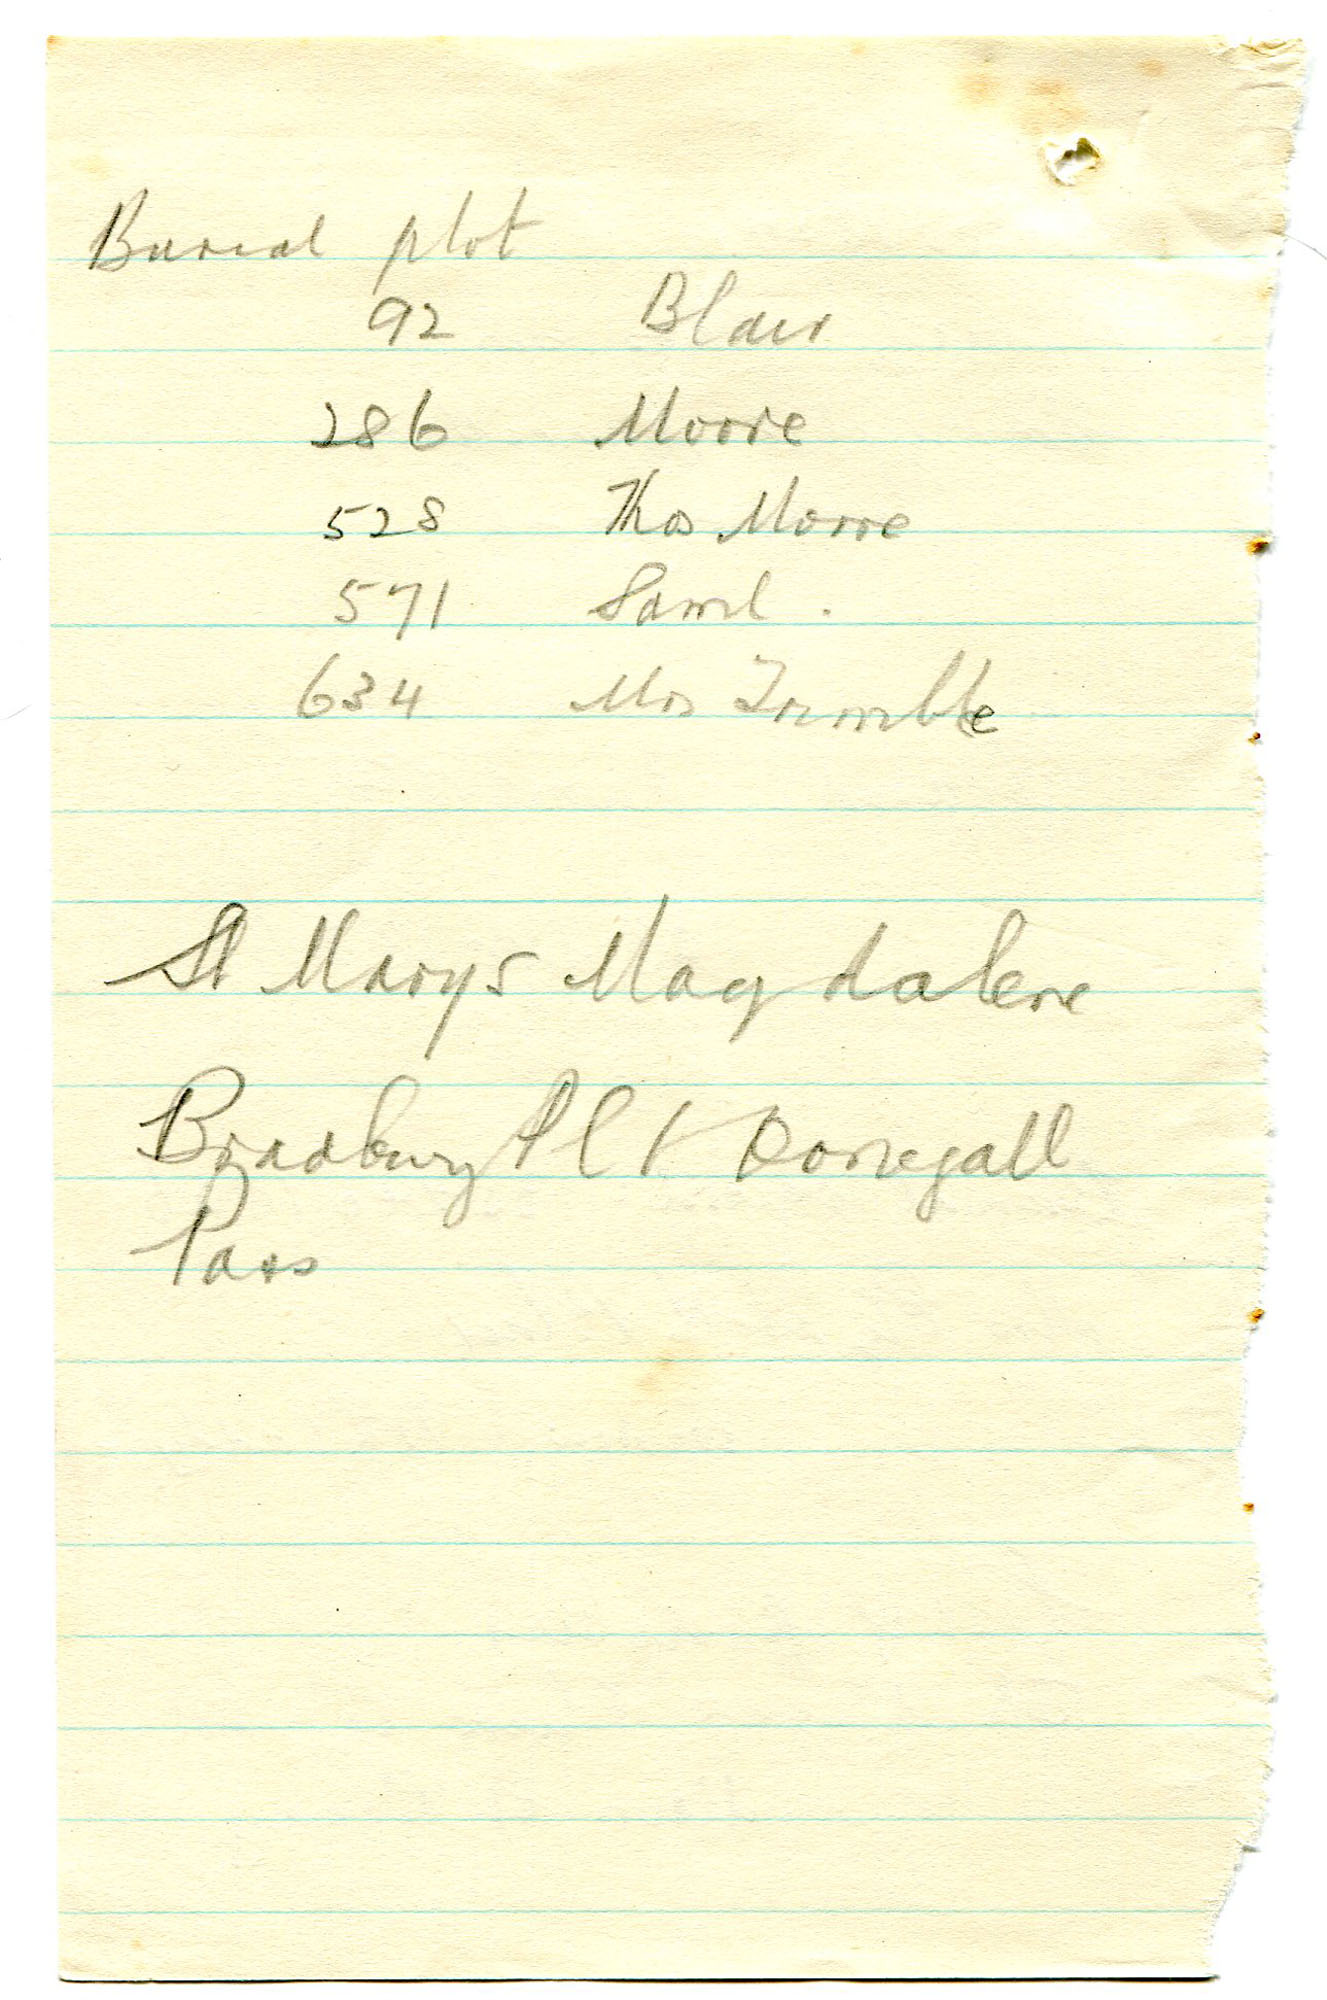 Burial plot
92 Blair
286 Moore
528 Thos Moore
571 Saml .
634 Mrs Trimble
St Marys Magdalene
Bradbury Pl & Donegall
Pass